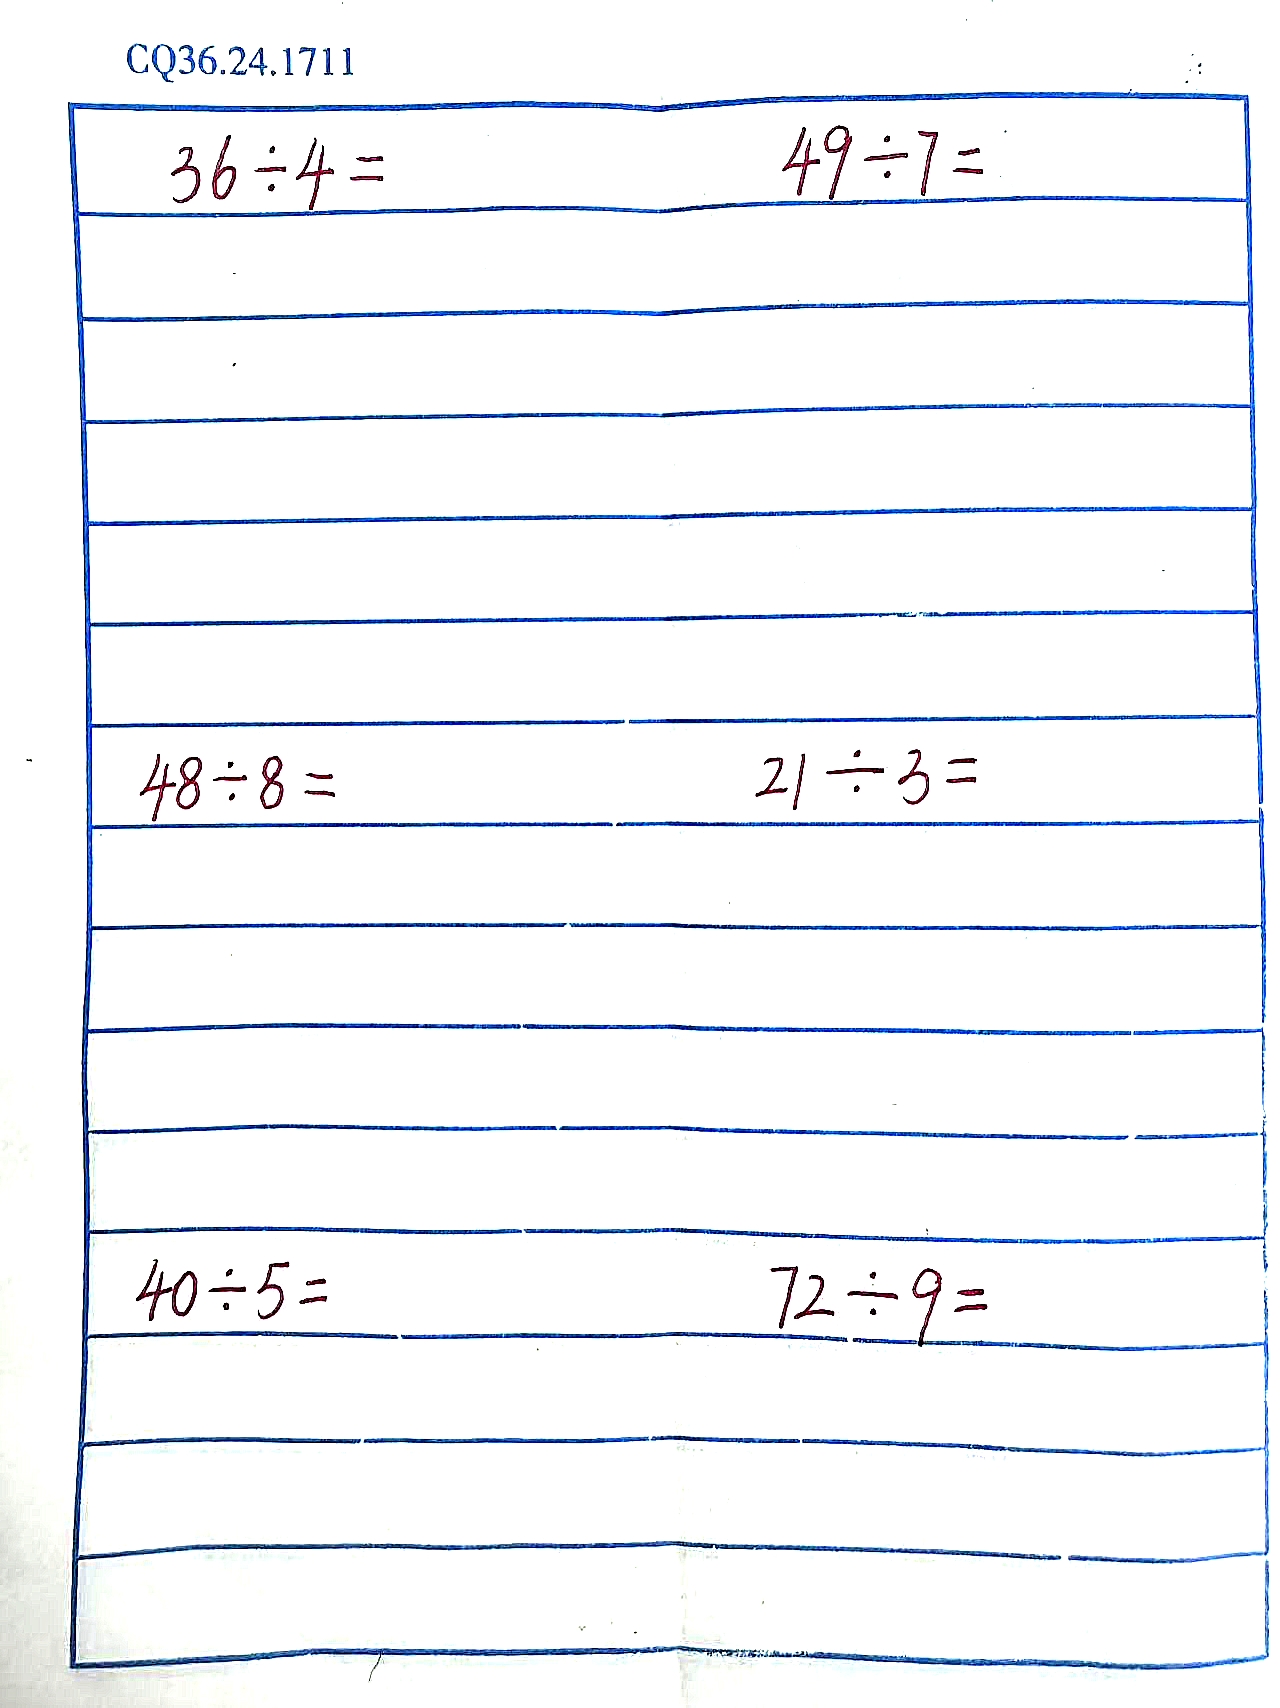 CQ36.24.1711
36÷4= 49÷7=
48÷8= 21÷3=
40÷5= 72÷9=